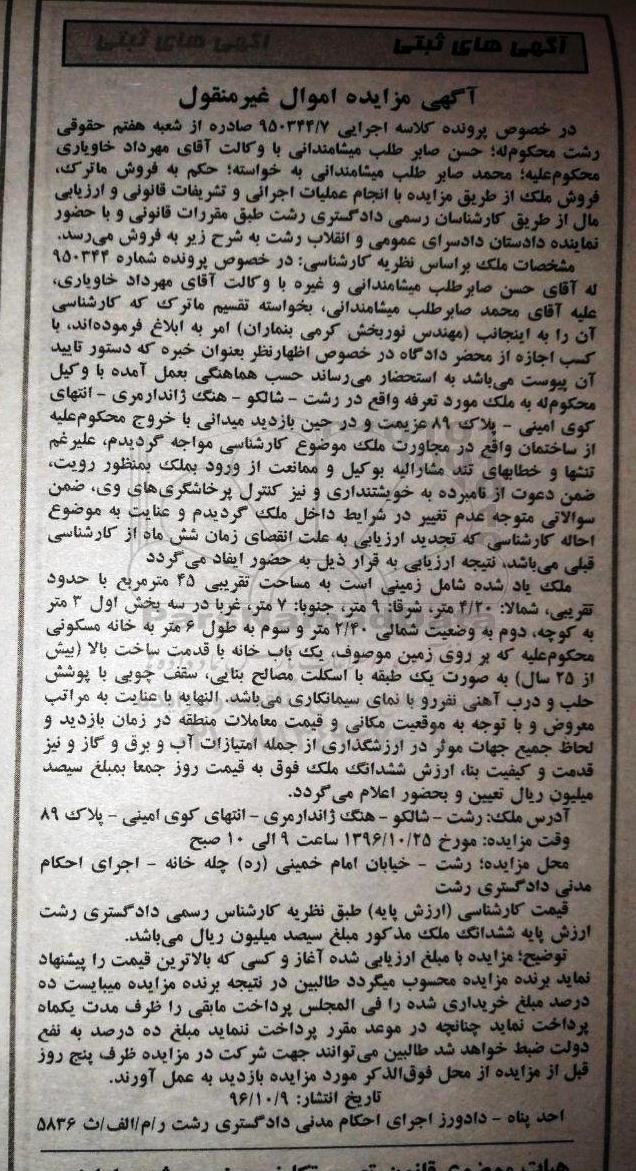 آگهی های ثبتی
آگهی مزایده اموال غیرمنقول
در خصوص پرونده کلاسه اجرایی ۹۵۰۳۴۴/۷ صادره از شعبه هفتم حقوقی
رشت محکوم‌له؛ حسن صابر طلب میشامندانی با وکالت آقای مهرداد خاویاری
محکوم‌علیه؛ محمد صابر طلب میشامندانی به خواسته؛ حکم به فروش ماترک،
فروش ملک از طریق مزایده با انجام عملیات اجرائی و تشریفات قانونی و ارزیابی
مال از طریق کارشناسان رسمی دادگستری رشت طبق مقررات قانونی و با حضور
نماینده دادستان دادسرای عمومی و انقلاب رشت به شرح زیر به فروش می‌رسد.
مشخصات ملک براساس نظریه کارشناسی: در خصوص پرونده شماره ۹۵۰۳۴۴
له آقای حسن صابرطلب میشامندانی و غیره با وکالت آقای مهرداد خاویاری،
علیه آقای محمد صابرطلب میشامندانی، بخواسته تقسیم ماترک که کارشناسی
آن را به اینجانب (مهندس نوربخش کرمی بنماران) امر به ابلاغ فرموده‌اند، با
کسب اجازه از محضر دادگاه در خصوص اظهارنظر بعنوان خبره که دستور تایید
آن پیوست می‌باشد به استحضار می‌رساند حسب هماهنگی بعمل آمده با وکیل
محکوم‌له به ملک مورد تعرفه واقع در رشت - شالکو - هنگ ژاندارمری - انتهای
کوی امینی - پلاک ۸۹ عزیمت و در حین بازدید میدانی با خروج محکوم‌علیه
از ساختمان واقع در مجاورت ملک موضوع کارشناسی مواجه گردیدم، علیرغم
تنشها و خطابهای تند مشارالیه بوکیل و ممانعت از ورود بملک بمنظور رویت،
ضمن دعوت از نامبرده به خویشتنداری و نیز کنترل پرخاشگری‌های وی، ضمن
سوالاتی متوجه عدم تغییر در شرایط داخل ملک گردیدم و عنایت به موضوع
احاله کارشناسی که تجدید ارزیابی به علت انقضای زمان شش ماه از کارشناسی
قبلی می‌باشد، نتیجه ارزیابی به قرار ذیل به حضور ایفاد می‌گردد
ملک یاد شده شامل زمینی است به مساحت تقریبی ۴۵ مترمربع با حدود
تقریبی، شمالا: ۴/۲۰ متر، شرقا: ۹ متر، جنوبا: ۷ متر، غربا در سه بخش اول ۳ متر
به کوچه، دوم به وضعیت شمالی ۲/۴۰ متر و سوم به طول ۶ متر به خانه مسکونی
محکوم‌علیه که بر روی زمین موصوف، یک باب خانه با قدمت ساخت بالا (بیش
از ۲۵ سال) به صورت یک طبقه با اسکلت مصالح بنایی، سقف چوبی با پوشش
حلب و درب آهنی نفررو با نمای سیمانکاری می‌باشد. النهایه با عنایت به مراتب
معروض و با توجه به موقعیت مکانی و قیمت معاملات منطقه در زمان بازدید و
لحاظ جمیع جهات موثر در ارزشگذاری از جمله امتیازات آب و برق و گاز و نیز
قدمت و کیفیت بنا، ارزش ششدانگ ملک فوق به قیمت روز جمعا بمبلغ سیصد
میلیون ریال تعیین و بحضور اعلام می‌گردد.
آدرس ملک: رشت - شالکو - هنگ ژاندارمری - انتهای کوی امینی - پلاک ۸۹
وقت مزایده: مورخ ۱۳۹۶/۱۰/۲۵ ساعت ۹ الی ۱۰ صبح
محل مزایده؛ رشت - خیابان امام خمینی (ره) چله خانه - اجرای احکام
مدنی دادگستری رشت
قیمت کارشناسی (ارزش پایه) طبق نظریه کارشناس رسمی دادگستری رشت
ارزش پایه ششدانگ ملک مذکور مبلغ سیصد میلیون ریال می‌باشد.
توضیح؛ مزایده با مبلغ ارزیابی شده آغاز و کسی که بالاترین قیمت را پیشنهاد
نماید برنده مزایده محسوب میگردد طالبین در نتیجه برنده مزایده میبایست ده
درصد مبلغ خریداری شده را فی المجلس پرداخت مابقی را ظرف مدت یکماه
پرداخت نماید چنانچه در موعد مقرر پرداخت ننماید مبلغ ده درصد به نفع
دولت ضبط خواهد شد طالبین می‌توانند جهت شرکت در مزایده ظرف پنج روز
قبل از مزایده از محل فوق‌الذکر مورد مزایده بازدید به عمل آورند.
تاریخ انتشار: ۹۶/۱۰/۹
احد پناه - دادورز اجرای احکام مدنی دادگستری رشت ر/م/الف/ث ۵۸۳۶